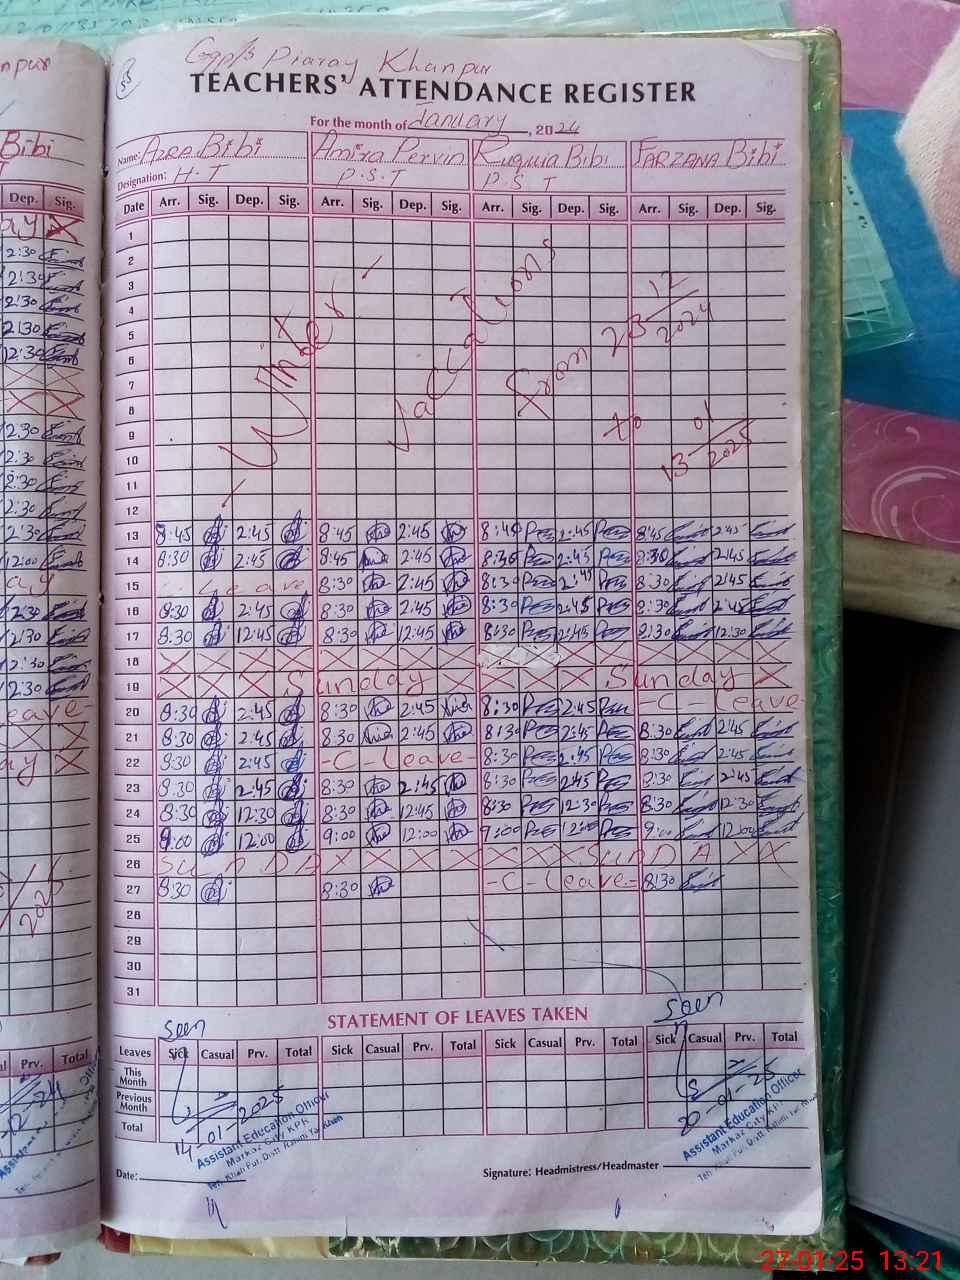 Ggp/s Piaray Khanpur
TEACHERS' ATTENDANCE REGISTER
For the month of January, 2024
Name: AZRA Bibi Amira Pervin Ruquia Bibi FARZANA Bibi
Designation: H.T P.S.T P.S.T
Date Arr. Sig. Dep. Sig. Arr. Sig. Dep. Sig. Arr. Sig. Dep. Sig. Arr. Sig. Dep. Sig.
1
2
3
4
5
6
7
8
9
10
11
12
- Winter - Vaccations from 23 12 2024 to 13 01 2025
13 8:45 2:45 8:45 2:45 8:45 2:45 8:45 2:45
14 8:30 2:45 8:45 2:45 8:30 2:45 8:30 2:45
15 Leave 8:30 2:45 8:30 2:45 8:30 2:45
16 8:30 2:45 8:30 2:45 8:30 2:45 8:30 2:45
17 8:30 12:45 8:30 12:45 8:30 12:45 8:30 12:30
18
19 Sunday Sunday
20 8:30 2:45 8:30 2:45 8:30 2:45 -C-Leave-
21 8:30 2:45 8:30 2:45 8:30 2:45 8:30 2:45
22 8:30 2:45 -C-Leave- 8:30 2:45 8:30 2:45
23 8:30 2:45 8:30 2:45 8:30 2:45 8:30 2:45
24 8:30 12:30 8:30 12:45 8:30 12:30 8:30 12:30
25 9:00 12:00 9:00 12:00 9:00 12:00 9:00 12:00
26 SUNDA SUNDA
27 8:30 8:30 -C-Leave- 8:30
28
29
30
31
STATEMENT OF LEAVES TAKEN
Seen Seen
Leaves Sick Casual Prv. Total Sick Casual Prv. Total Sick Casual Prv. Total Sick Casual Prv. Total
This Month
Previous Month
Total
14-01-2025
Assistant Education Officer
Markaz City KPK
20-01-25
Assistant Education Officer
Markaz City KPK
Date:
Signature: Headmistress/Headmaster
Bibi
Dep. Sig.
2:30
2:30
2:30
2:30
12:30
2:30
2:30
2:30
2:30
2:30
12:00
12:30
12:30
12:30
12:30
eave-
2025
Prv. Total
27-01-25 13:21